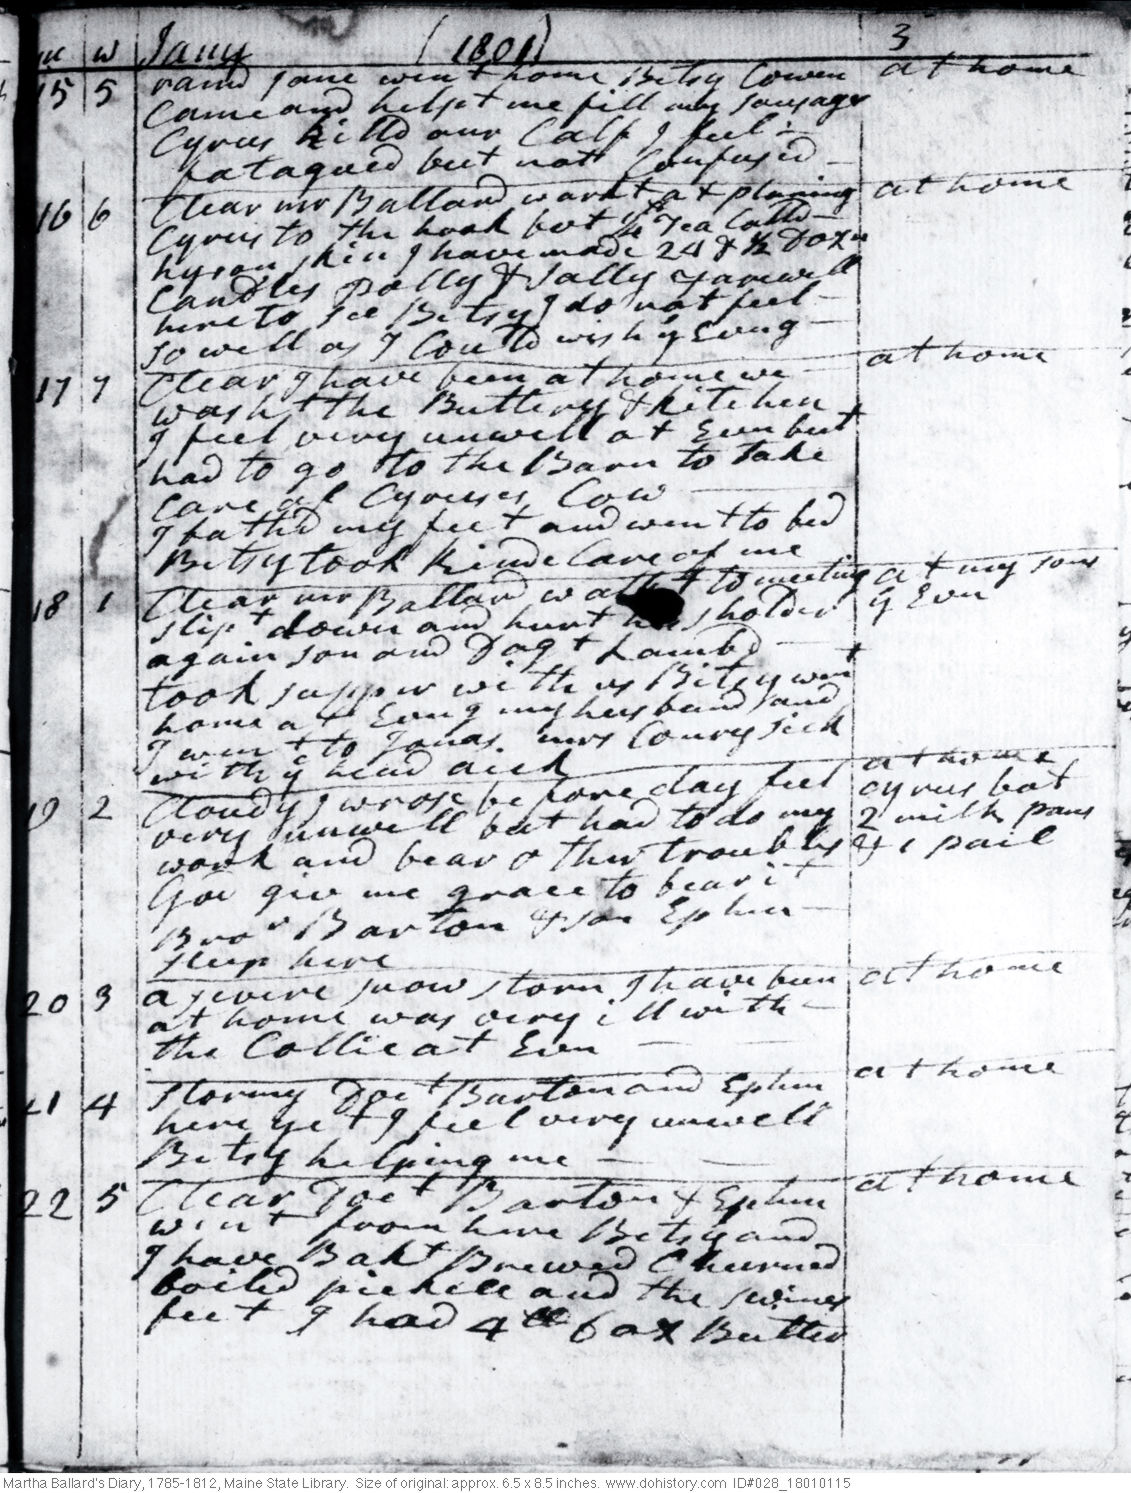 m w Jany (1801) 3
15 5 raind Jane went home Betsy Cowen at home
Came and helpt me fill my sausages
Cyrus killd our Calf I feel
fatagued but not Confused
16 6 Clear mr Ballard workt at planing at home
Cyrus to the hook bot ¼ Tea Calld
hyson skin I have made 24 & ½ Dozn
Candles Polly & Sally Farewell
here to see Betsy I do not feel
so well as I Could wish ys Evng
17 7 Clear I have been at home we at home
washt the Buttery & kitchen
I feel very unwell at Evn but
had to go to the Barn to take
Care of Cyruses Cow
I bathd my feet and went to bed
Betsy took kinde Care of me
18 1 Clear mr Ballard walkt to meeting at my sons
slipt down and hurt his sholder ys Evn
again son and Dagt Lambd
took supper with us Betsy went
home at Evng my husband and
I went to Jonas. mrs Coury sick
with ye head ack
19 2 Cloudy I wrose before day feel at home
very unwell but had to do my Cyrus bot
work and bear other troubles 2 milk pans
God give me grace to bear it & 1 pail
Bror Barton & son Ephm
sleep here
20 3 a severe snow storm I have been at home
at home was very ill with
the Collic at Evn
21 4 stormy Doct Barton and Ephm at home
here yet I feel very unwell
Betsy helping me
22 5 Clear Doct Barton & Ephm at home
went from here Betsy and
I have Bakt Brewed Churned
boild pickell and the swines
feet I had 4 lb 6 oz Butter
Martha Ballard's Diary, 1785-1812, Maine State Library. Size of original: approx. 6.5 x 8.5 inches. www.dohistory.com ID#028_18010115